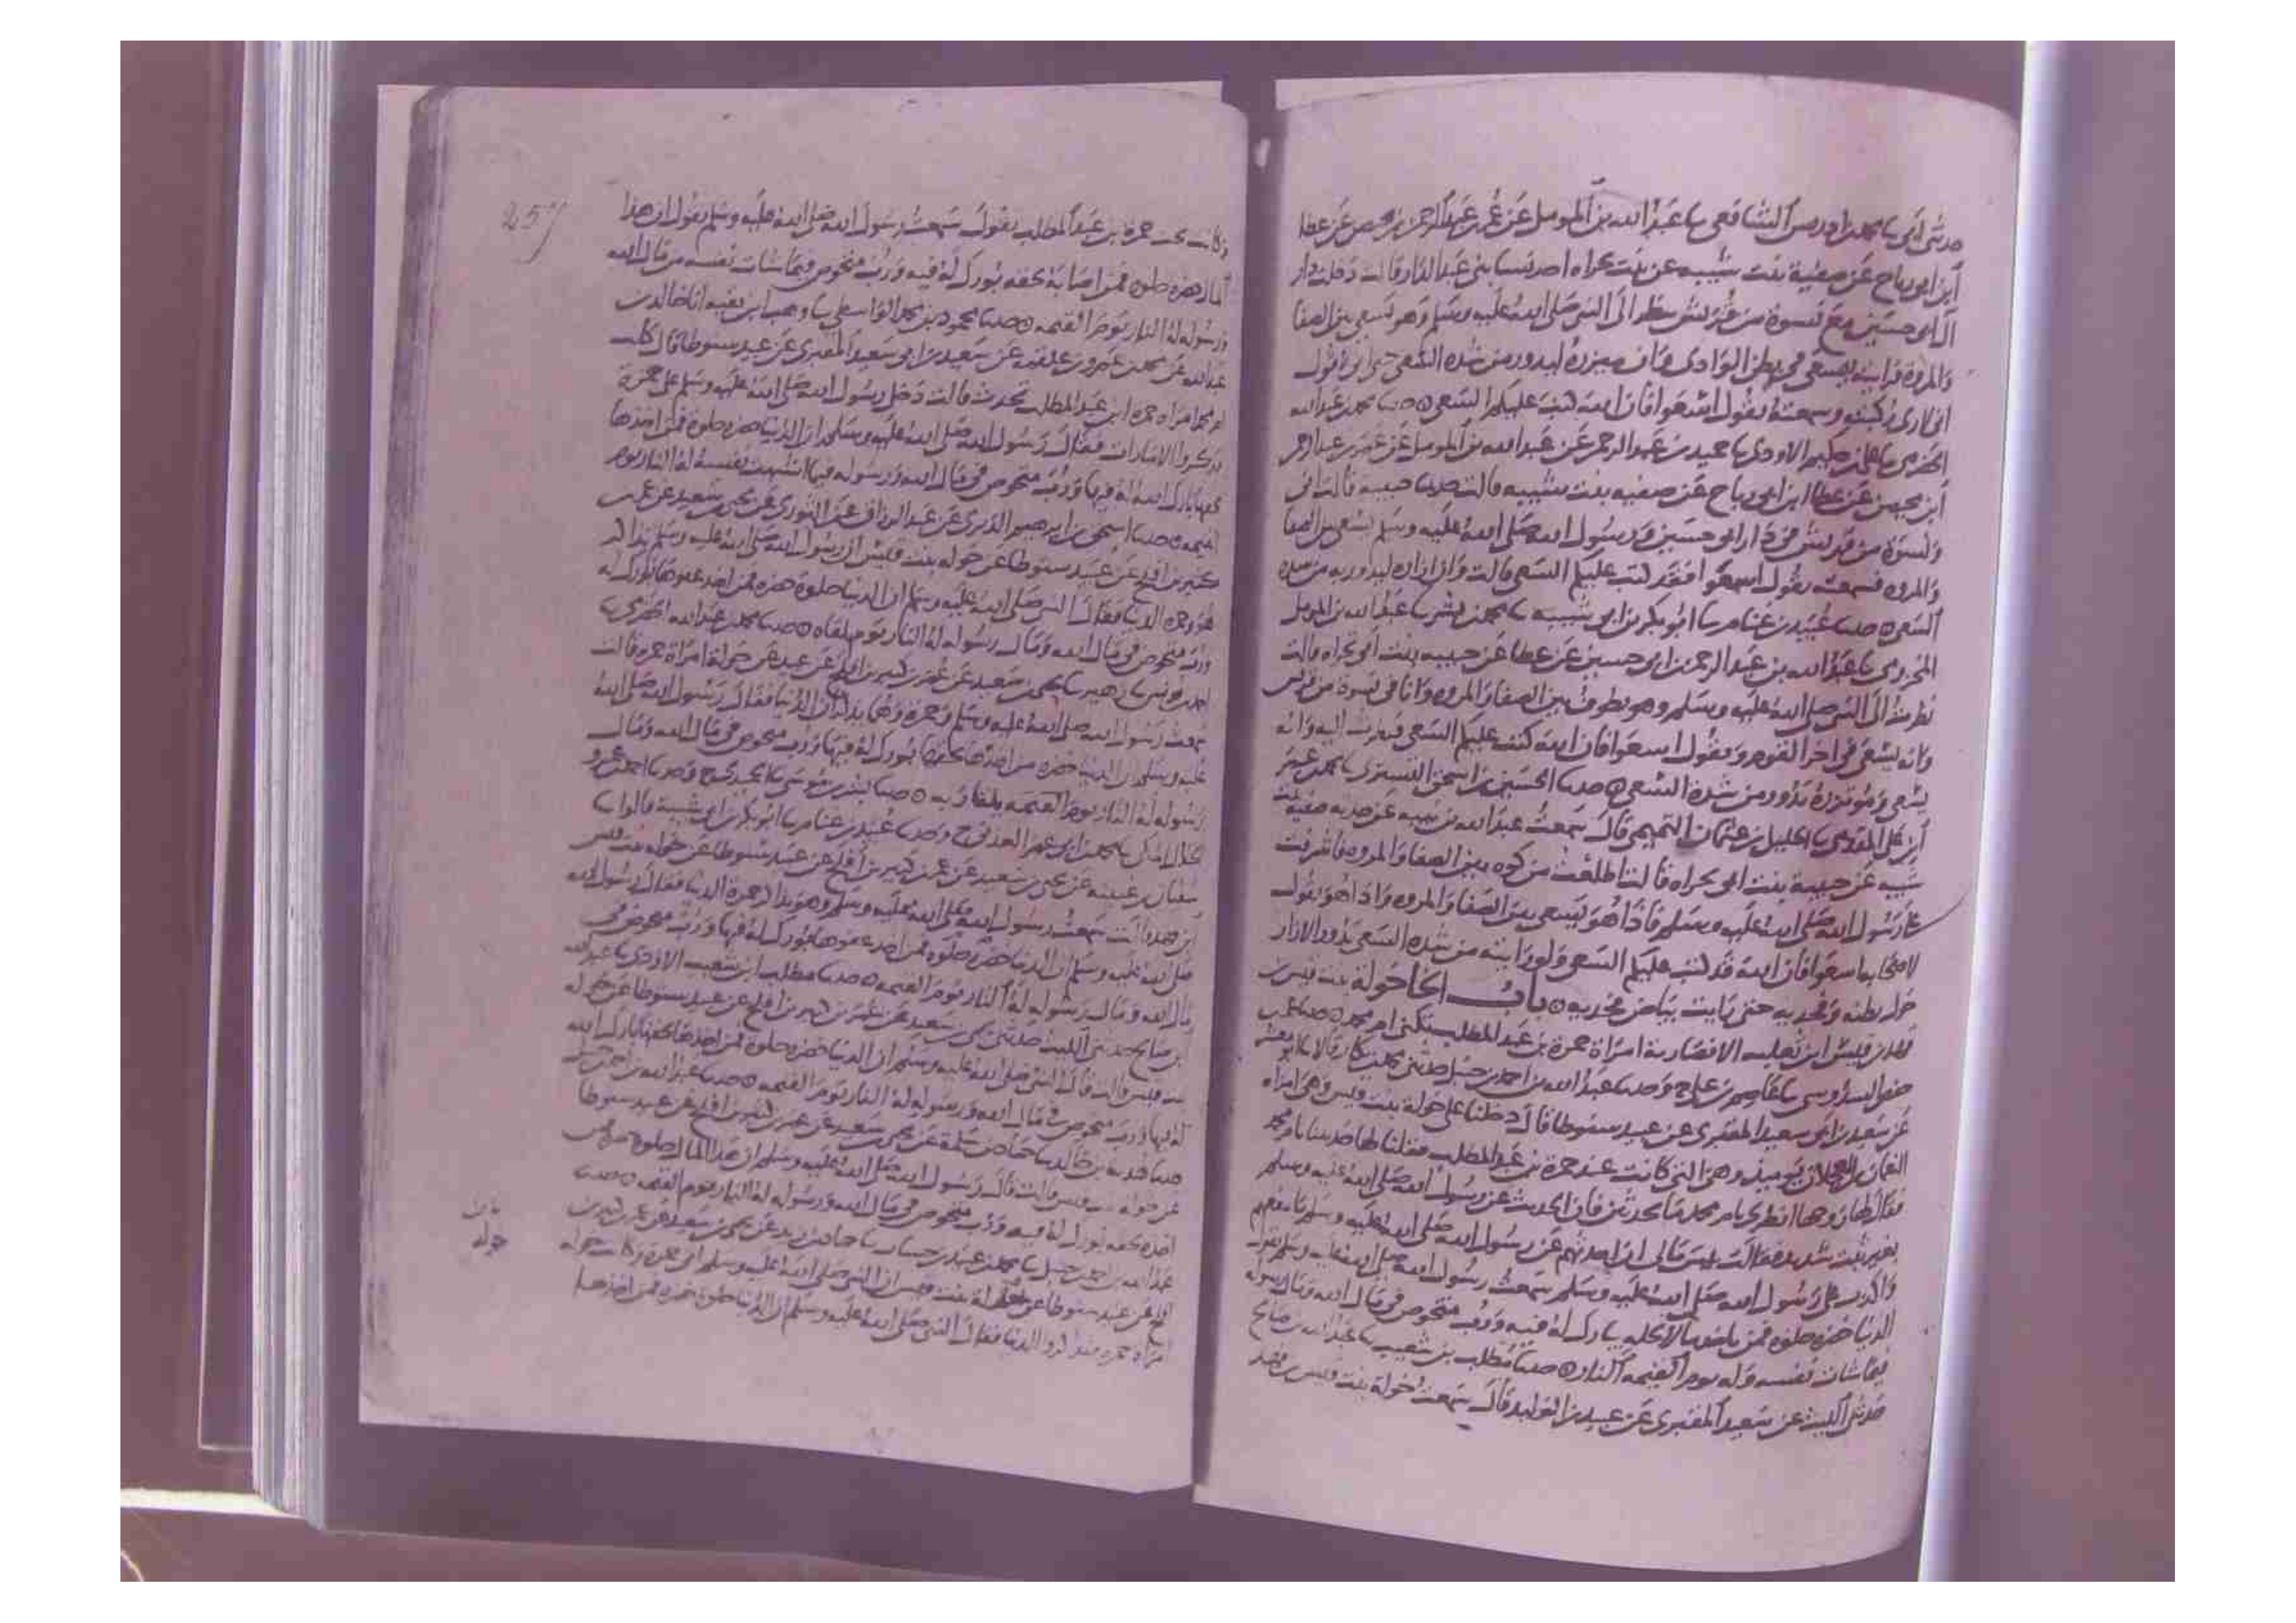 حدثني أبي نا محمد بن ادريس الشافعي نا عبد الله بن المومل عن عمر بن عبد الرحمن بن محيصن عن عطا
ابن ابي رباح عن صفية بنت شيبه عن بنت تجراه احد نسا بني عبد الدار قالت دخلت دار
آل ابي حسين مع نسوة من قريش ننظر الى النبي صلى الله عليه وسلم وهو يسعى بين الصفا
والمروة فرايته يسعى في بطن الوادي وان ميزره ليدور من شدة السعي حتى اني لاقول
اني لارى ركبتيه وسمعته يقول اسعوا فان الله كتب عليكم السعي ه حدثنا محمد بن عبد الله
الحضرمي نا علي بن حكيم الاودي نا حميد بن عبد الرحمن عن عبد الله بن المومل عن عمر بن عبد الرحمن
ابن محيصن عن عطا ابن ابي رباح عن صفيه بنت شيبه قالت حدثتنا حبيبه قالت اني
ونسوة من قريش في دار ابي حسين ورسول الله صلى الله عليه وسلم يسعى بين الصفا
والمروه فسمعته يقول اسعوا فقد كتب عليكم السعي قالت وان ازاره ليدور به من شدة
السعي ه حدثنا عبيد بن غنام نا ابو بكر بن ابي شيبه نا محمد بن بشر نا عبد الله بن المومل
المخزومي نا عبد الله بن عبد الرحمن بن ابي حسين عن عطا عن حبيبه بنت ابي تجراه قالت
نظرت الى النبي صلى الله عليه وسلم وهو يطوف بين الصفا والمروه وانا في نسوة من قريش
وانه يسعى في اخر القوم ويقول اسعوا فان الله كتب عليكم السعي فنظرت اليه وانه
يسعى وموتزره يدور من شدة السعي ه حدثنا الحسين بن اسحق التستري نا محمد بن عمر
ابن علي المقدمي نا الخليل بن عثمان التميمي قال سمعت عبد الله بن نبيه عن جدته صفيه بنت
شيبه عن حبيبة بنت ابي تجراه قالت اطلعت من كوه بين الصفا والمروه فاشرفت
على رسول الله صلى الله عليه وسلم فاذا هو يسعى بين الصفا والمروه واذا هو يقول
لاصحابه اسعوا فان الله قد كتب عليكم السعي ولو رايته من شده السعي يدور الازار
حول بطنه وفخذيه حتى رايت بياض فخذيه ه باب الخا خولة بنت قيس بن
قهد بن قيس ابن ثعلبه الانصارية امراة حمزة بن عبد المطلب تكنى ام محمد ه حدثنا عمر بن
حفص السدوسي نا عاصم بن علي ح وحدثنا عبد الله بن احمد بن حنبل حدثني محمد بن بكار قالا نا ابو معشر
عن سعيد بن ابي سعيد المقبري عن عبيد سنوطا قال دخلنا على خولة بنت قيس وهي امراة
النعمان بن العجلان يوميذ وهي التي كانت عند حمزة بن عبد المطلب فقلنا لها حدثينا يا ام محمد
فقال لها زوجها انظري يا ام محمد ما تحدثين فان الحديث عن رسول الله صلى الله عليه وسلم
بغير ثبت شديد فقالت بيس مالي ان احدثهم عن رسول الله صلى الله عليه وسلم ما ينفعهم
واكذب على رسول الله صلى الله عليه وسلم سمعت رسول الله صلى الله عليه وسلم يقول
الدنيا خضره حلوه فمن ياخذ مالا بحله يبارك له فيه ورب متخوض في مال الله ومال رسوله
فيما شات نفسه وله يوم القيمه النار ه حدثنا مطلب بن شعيب نا عبد الله بن صالح
حدثني الليث عن سعيد المقبري عن عبيد بن الوليد قال سمعت خولة بنت قيس بن قهد
257
وكانت تحت حمزة بن عبد المطلب تقول سمعت رسول الله صلى الله عليه وسلم يقول ان هذا
المال خضره حلوه فمن اصابه بحقه بورك له فيه ورب متخوض فيما شات نفسه من مال الله
ورسوله له النار يوم القيمه ه حدثنا محمود بن محمد الواسطي نا وهب ابن بقيه انا خالد بن
عبد الله عن محمد بن عمرو بن علقمه عن سعيد بن ابي سعيد المقبري عن عبيد سنوطا قال كانت
ام محمد امراة حمزه ابن عبد المطلب تحدث قالت دخل رسول الله صلى الله عليه وسلم على حمزة
فذكروا الامارات فقال رسول الله صلى الله عليه وسلم ان الدنيا خضره حلوة فمن اخذها
بحقها بارك الله له فيها ورب متخوض في مال الله ورسوله فيما اشتهت نفسه له النار يوم
القيمه ه حدثنا اسحق بن ابرهيم الدبري عن عبد الرزاق عن الثوري عن يحيى بن سعيد عن عمر بن
كثير بن افلح عن عبيد سنوطا عن خوله بنت قيس ان رسول الله صلى الله عليه وسلم تذاكر
هو وحمزه الدنيا فقال النبي صلى الله عليه وسلم ان الدنيا حلوة خضره فمن اخذ عفوها بورك له
ورب متخوض في مال الله ومال رسوله له النار يوم يلقاه ه حدثنا محمد بن عبد الله الحضرمي نا
احمد بن يونس نا زهير نا يحيى بن سعيد عن عمر بن كثير بن افلح عن عبيد عن خولة امراة حمزه قالت
سمعت رسول الله صلى الله عليه وسلم وحمزة وهما يذكران الدنيا فقال رسول الله صلى الله
عليه وسلم ان الدنيا خضره من اخذها بحقها بورك له فيها ورب متخوض في مال الله ومال
رسوله له النار يوم القيمه يلقا ربه ه حدثنا بشر بن موسى نا الحميدي ح وحدثنا احمد بن عمرو
الخلال المكي نا محمد بن ابي عمر العدني ح وحدثنا عبيد بن غنام نا ابو بكر بن ابي شيبة قالوا نا
سفيان بن عيينه عن يحيى بن سعيد عن عمر بن كثير بن افلح عن عبيد سنوطا عن خوله بنت قيس
ابن قهد قالت سمعت رسول الله صلى الله عليه وسلم وهو يذاكر حمزة الدنيا فقال رسول الله
صلى الله عليه وسلم ان الدنيا خضرة حلوه فمن اخذ عفوها بورك له فيها ورب متخوض في
مال الله ومال رسوله له النار يوم القيمه ه حدثنا مطلب ابن شعيب الازدي نا عبد الله
بن صالح حدثني الليث حدثني يحيى بن سعيد عن عمر بن كثير بن افلح عن عبيد سنوطا عن خوله
بنت قيس قالت قال النبي صلى الله عليه وسلم ان الدنيا خضره حلوة فمن اخذها بحقها بارك الله
له فيها ورب متخوض في مال الله ورسوله له النار يوم القيمه ه حدثنا عبد الله بن احمد بن حنبل
حدثنا هدبه بن خالد نا حماد بن سلمة عن يحيى بن سعيد عن عمر بن كثير بن افلح عن عبيد سنوطا
عن خولة بنت قيس قالت قال رسول الله صلى الله عليه وسلم ان هذا المال حلوة خضره من
اخذه بحقه بورك له فيه ورب متخوض في مال الله ورسوله له النار يوم القيمه ه حدثنا
عبد الله بن احمد بن حنبل نا محمد بن عبيد بن حساب نا حماد بن زيد عن يحيى بن سعيد عن عمر بن كثير بن
افلح عن عبيد سنوطا عن خولة بنت قيس ان النبي صلى الله عليه وسلم اتى حمزة وكانت خوله
امراة حمزه فتذاكروا الدنيا فقال النبي صلى الله عليه وسلم ان الدنيا حلوة خضره فمن اخذها
باب
خوله